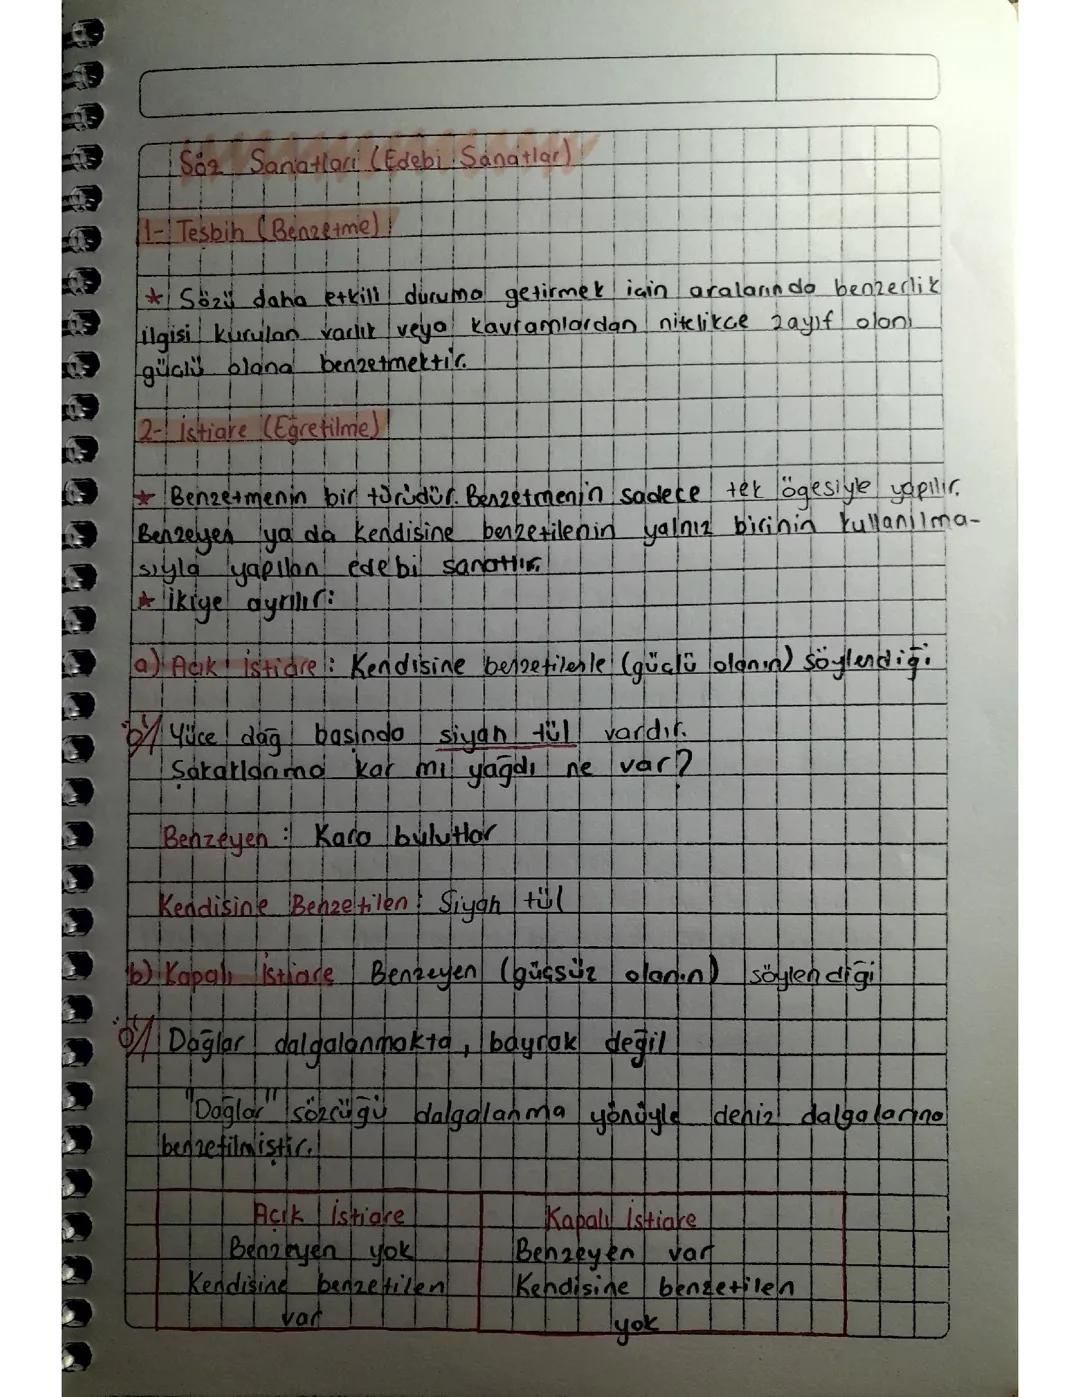 Söz Sanatları (Edebi Sanatlar)
1- Teşbih (Benzetme)
* Sözü daha etkili duruma getirmek için aralarında benzerlik
ilgisi kurulan varlık veya kavramlardan nitelikce zayıf olanı
güçlü olana benzetmektir.
2- İstiare (Eğretilme)
* Benzetmenin bir türüdür. Benzetmenin sadece tek ögesiyle yapılır.
Benzeyen ya da kendisine benzetilenin yalnız birinin kullanılma-
sıyla yapılan edebi sanattır.
* İkiye ayrılır:
a) Açık İstiare: Kendisine benzetilenle (güçlü olanın) söylendiği
ö/ Yüce dağ başında siyah tül vardır.
Şakaklarıma kar mı yağdı ne var?
Benzeyen: Kara bulutlar
Kendisine Benzetilen: Siyah tül
b) Kapalı İstiare Benzeyen (güçsüz olanın) söylendiği
Ö/ Dağlar dalgalanmakta, bayrak değil
"Dağlar" sözcüğü dalgalanma yönüyle deniz dalgalarına
benzetilmiştir.
Açık İstiare Kapalı İstiare
Benzeyen yok Benzeyen var
Kendisine benzetilen Kendisine benzetilen
var yok